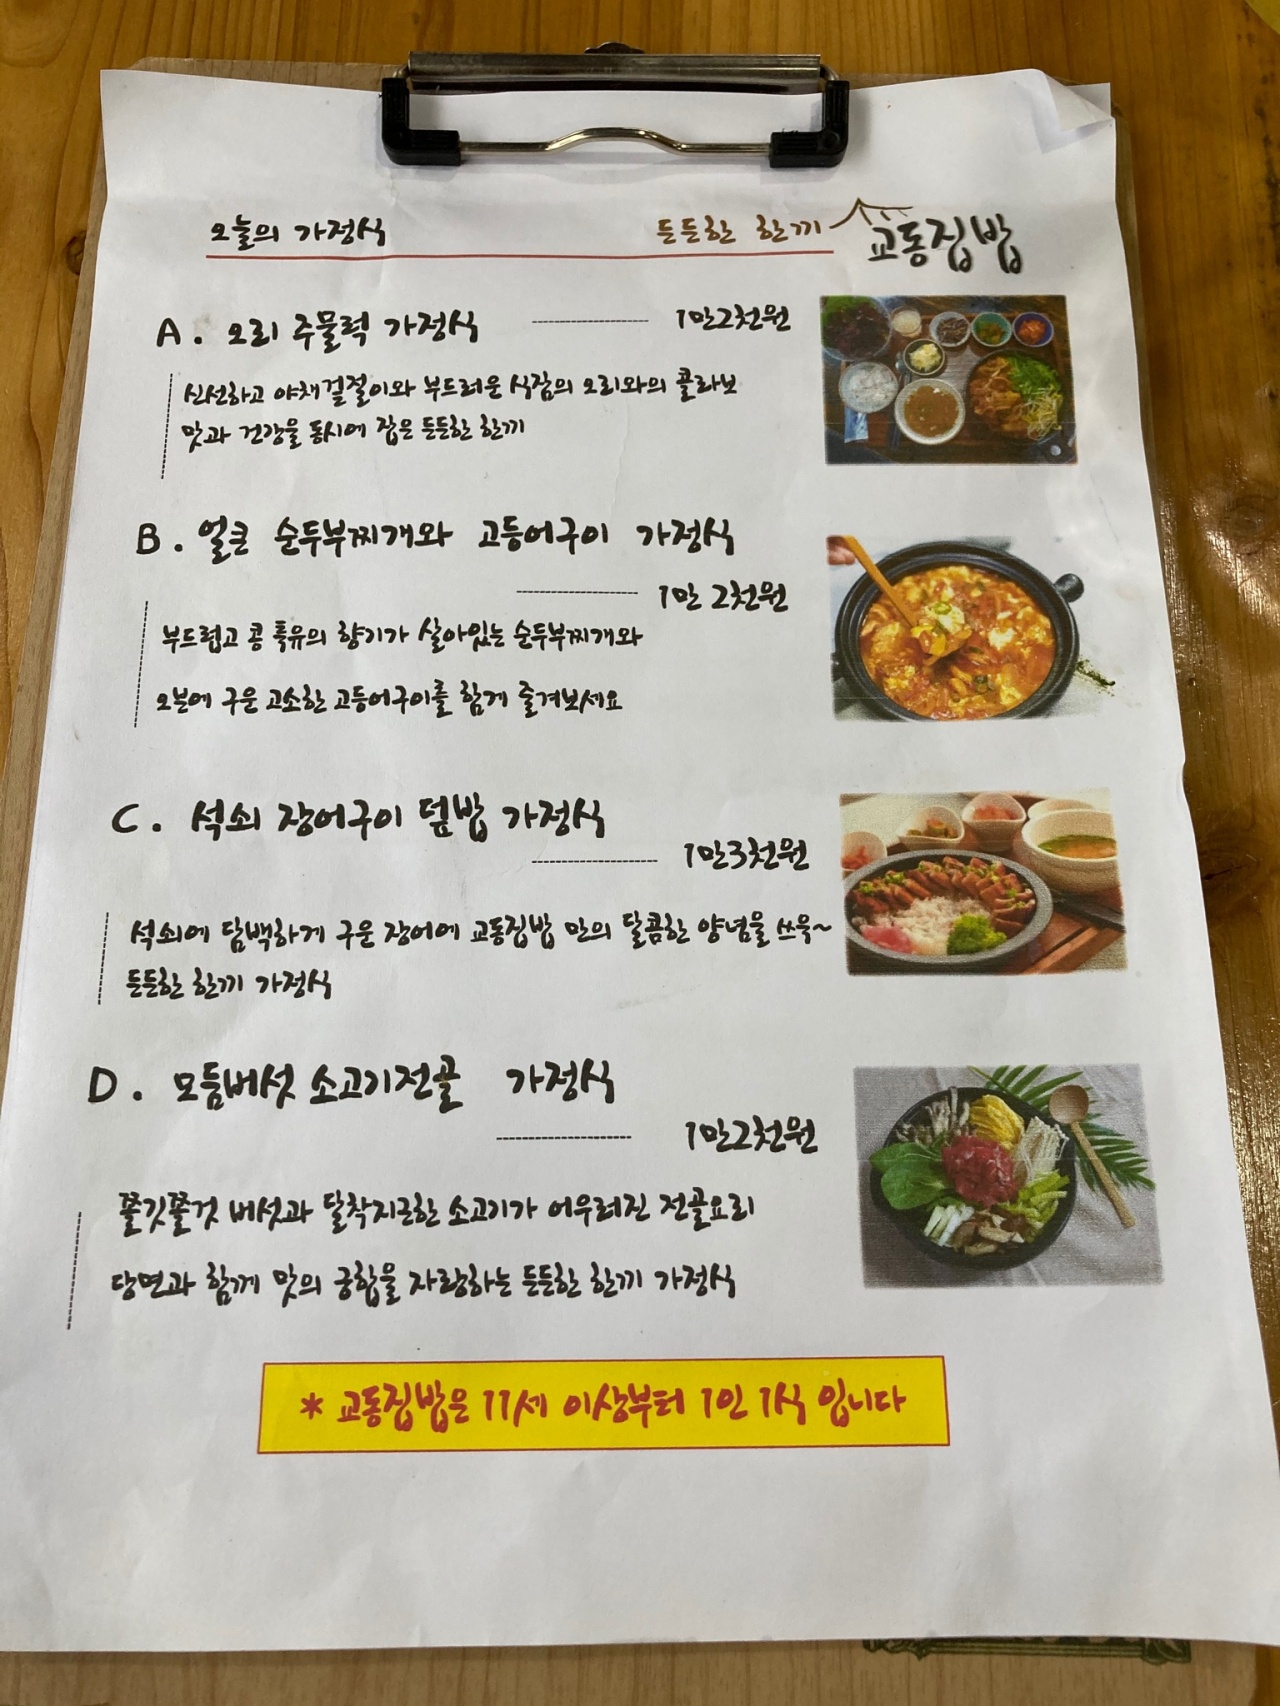 오늘의 가정식
든든한 한끼 교동집밥
A. 오리 주물럭 가정식 1만2천원
신선하고 야채겉절이와 부드러운 식감의 오리와의 콜라보
맛과 건강을 동시에 잡은 든든한 한끼
B. 얼큰 순두부찌개와 고등어구이 가정식
1만 2천원
부드럽고 콩 특유의 향기가 살아있는 순두부찌개와
오븐에 구운 고소한 고등어구이를 함께 즐겨보세요
C. 석쇠 장어구이 덮밥 가정식
1만3천원
석쇠에 담백하게 구운 장어에 교동집밥 만의 달콤한 양념을 쓰윽~
든든한 한끼 가정식
D. 모듬버섯 소고기전골 가정식
1만2천원
쫄깃쫄깃 버섯과 달착지근한 소고기가 어우러진 전골요리
당면과 함께 맛의 궁합을 자랑하는 든든한 한끼 가정식
* 교동집밥은 11세 이상부터 1인 1식 입니다